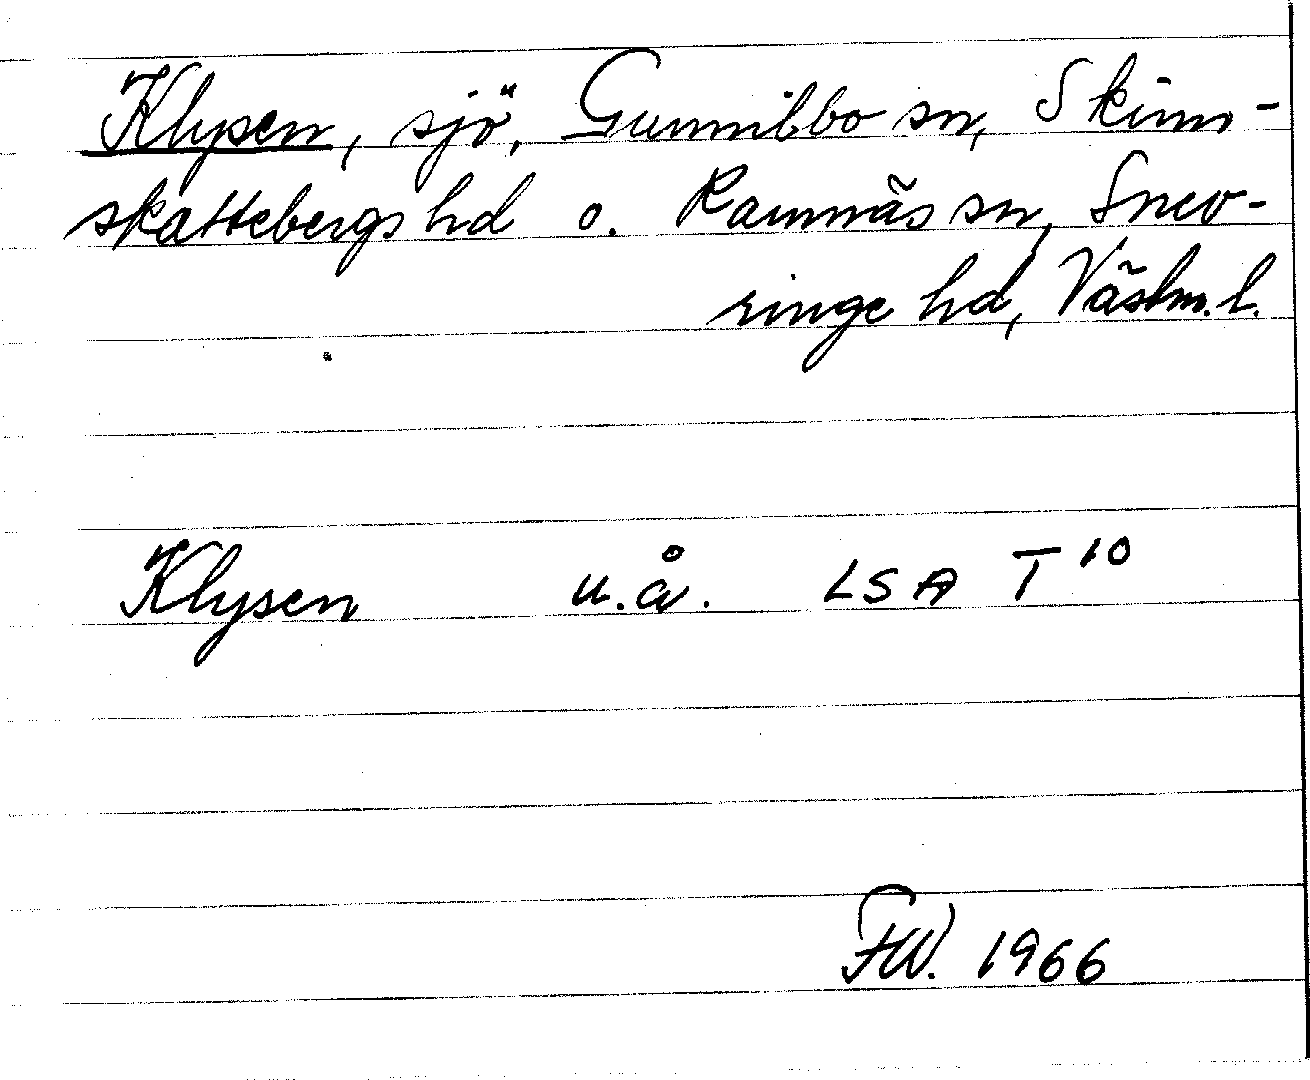 Klysen, sjö, Gunnilbo sn, Skinn-
skattebergs hd o. Ramnäs sn, Snev-
ringe hd, Västm. l.
Klysen u.å. LSA T 10
FW. 1966